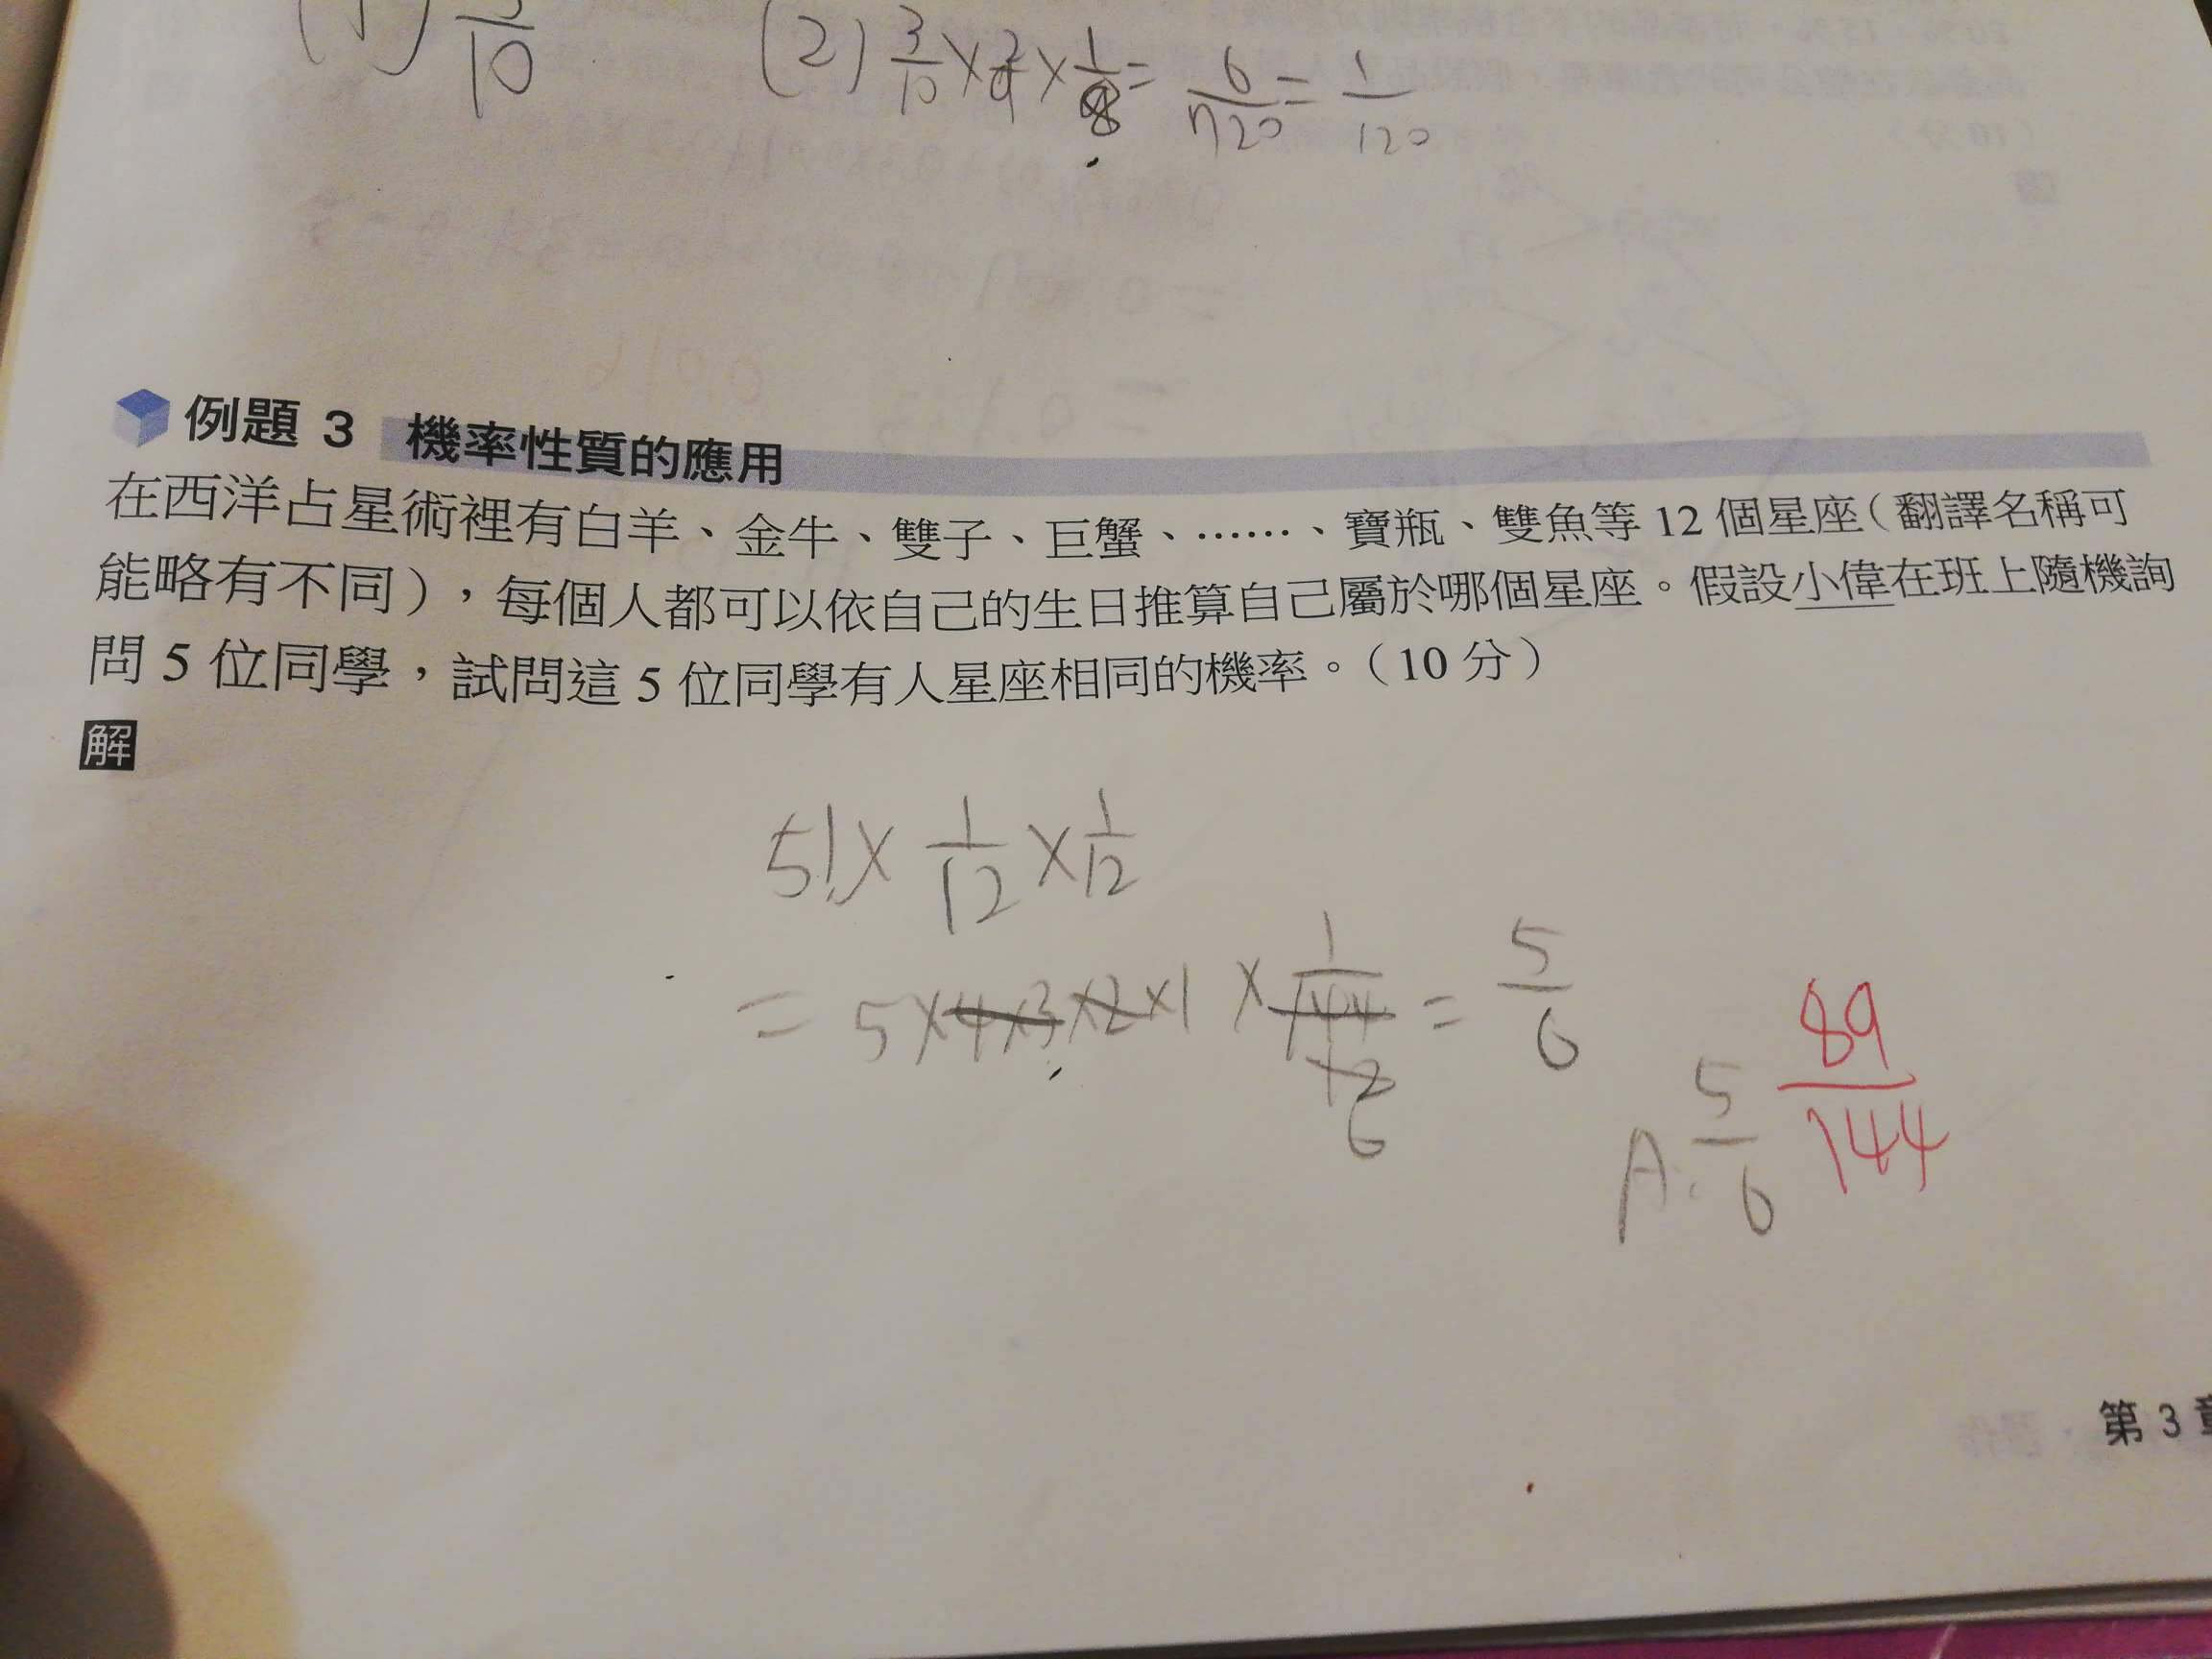 (1) 3/10 (2) 3/10 × 2/9 × 1/8 = 6/720 = 1/120
例題 3 機率性質的應用
在西洋占星術裡有白羊、金牛、雙子、巨蟹、……、寶瓶、雙魚等 12 個星座（翻譯名稱可
能略有不同），每個人都可以依自己的生日推算自己屬於哪個星座。假設小偉在班上隨機詢
問 5 位同學，試問這 5 位同學有人星座相同的機率。（10 分）
解
5! × 1/12 × 1/12
= 5×4×3×2×1 × 1/144 = 5/6
12
6
A: 5/6 89/144
第 3